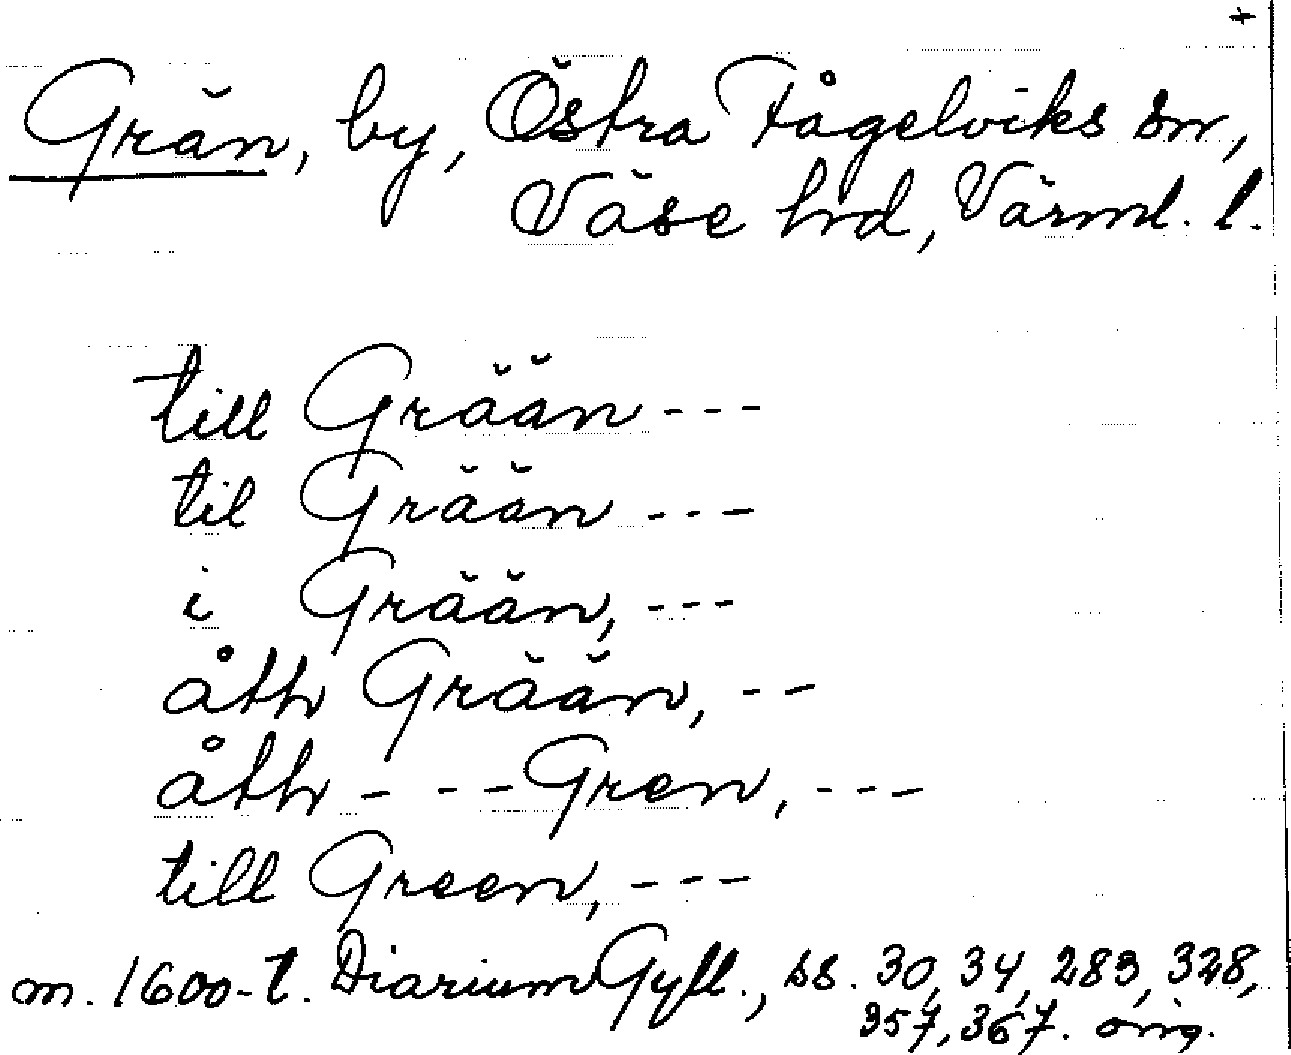 +
Grän, by, Östra Fågelviks sn,
Väse hrd, Värml. l.
till Grään ---
til Grään ---
i Grään, ---
åth Grään, --
åth - -- Gren, ---
till Green, ---
m. 1600-t. Diarium Gyll., ss. 30, 34, 283, 328,
357, 367. orig.